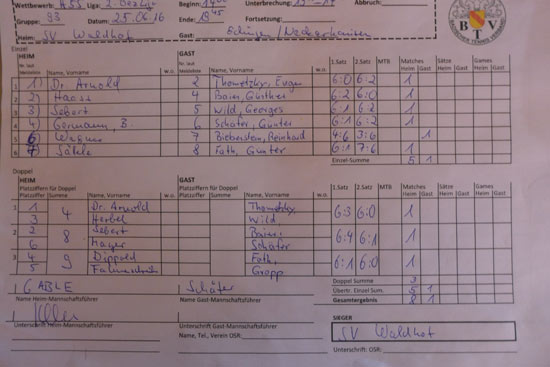 Wettbewerb: H55 Liga: 2. Bezliga
Gruppe: 93 Datum: 25.06.16 Ende: 19 45 Fortsetzung:
Heim: SV Waldhof Gast: Edingen/Neckarhausen
BTV
HEIM GAST 1.Satz 2.Satz MTB Matches Sätze Games
Nr. laut Meldeliste Name, Vorname w.o. Nr. laut Meldeliste Name, Vorname w.o. Heim Gast Heim Gast Heim Gast
1 1) Dr. Arnold 2 Thometzky, Eugen 6:0 6:2 1
2 2) Haase 4 Baier, Günther 6:2 6:0 1
3 3) Sebert 5 Wild, Georges 6:1 6:2 1
4 4) Germann, B. 6 Schäfer, Gunter 6:1 6:2 1
5 6) 7 Biebenstein, Reinhard 4:6 3:6 1
6 7) 8 Fath, Gunter 6:1 7:6 1
Einzel-Summe 5 1
Doppel
HEIM GAST 1.Satz 2.Satz MTB Matches Sätze Games
Platzziffern für Doppel Platzziffern für Doppel Heim Gast Heim Gast Heim Gast
Platzziffer Summe Name, Vorname w.o. Platzziffer Summe Name, Vorname w.o.
1 1 4 Dr. Arnold Thometzky 6:3 6:0 1
3 Herbel Wild
2 2 8 Sebert Baier 6:4 6:1 1
6 Mayer Schäfer
3 4 9 Dippold Fath, 6:1 6:0 1
5 Gropp
Doppel Summe 3
Übertr. Einzel Sum. 5 1
Gesamtergebnis 8 1
GABLE Schäfer
Name Heim-Mannschaftsführer Name Gast-Mannschaftsführer
SIEGER
SV Waldhof
Unterschrift Heim-Mannschaftsführer Unterschrift Gast-Mannschaftsführer
Name, Tel., Verein OSR: Unterschrift OSR: